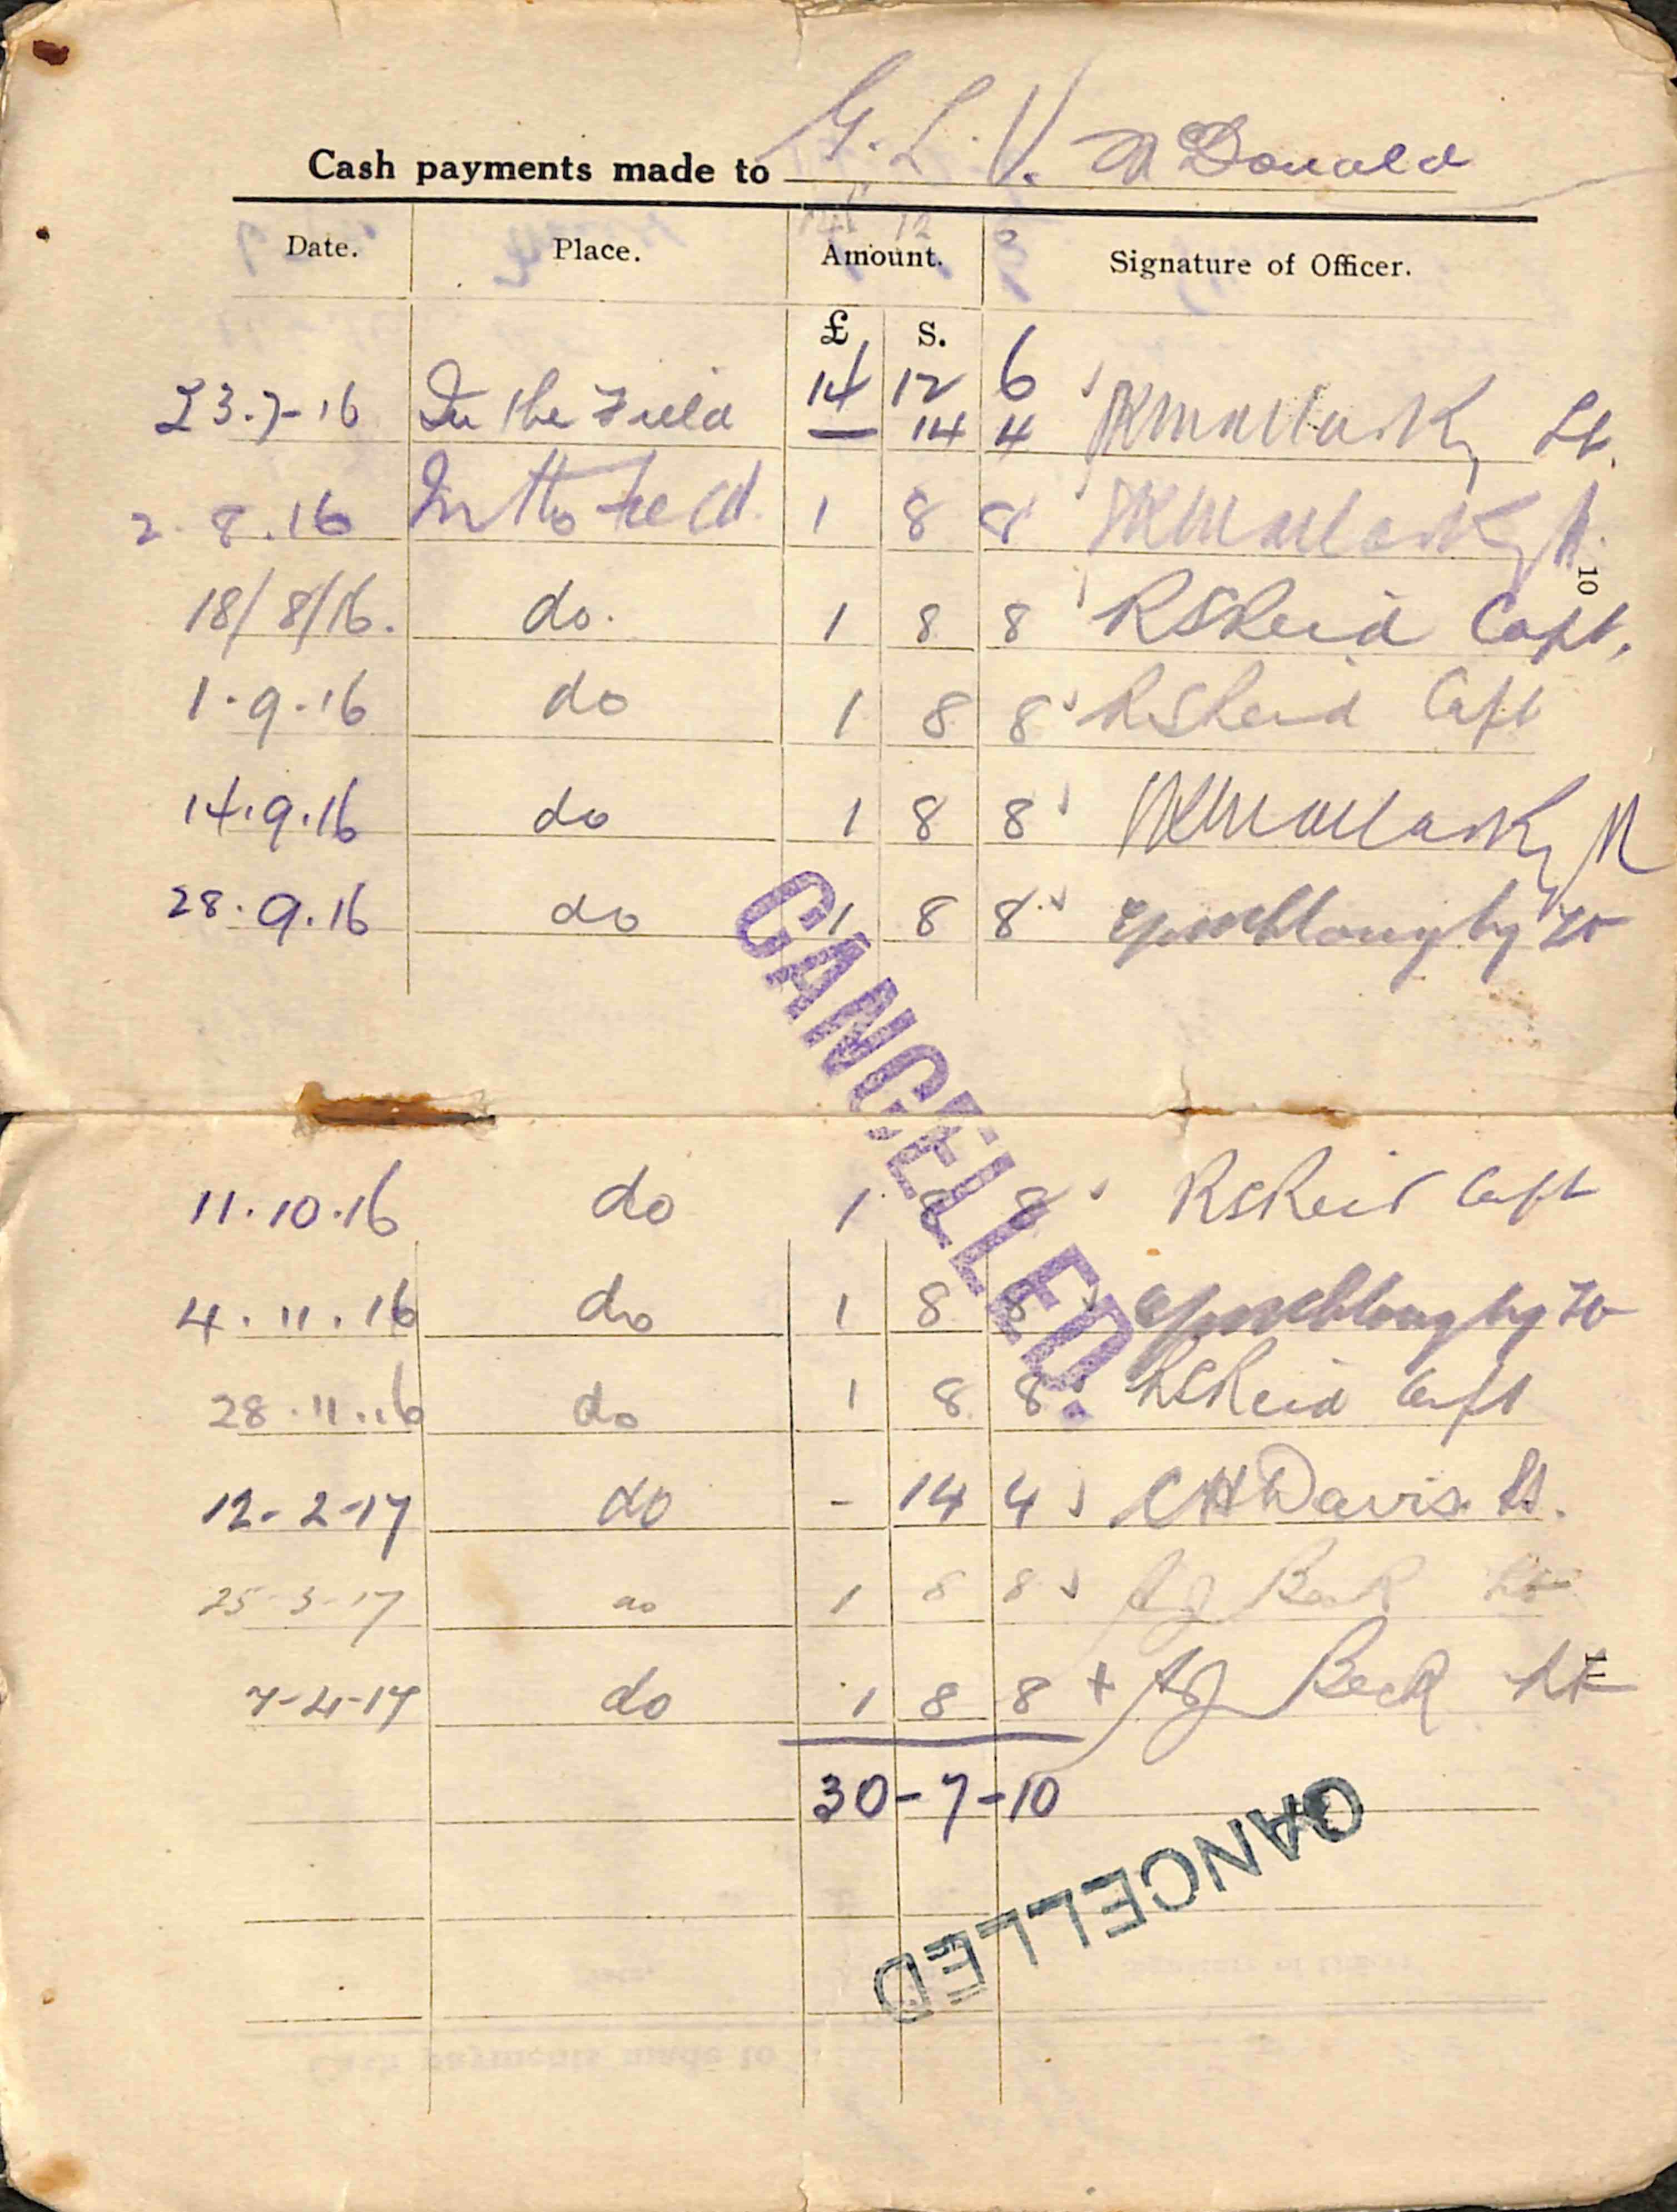 Cash payments made to G. L. V. McDonald
Date. Place. Amount. Signature of Officer.
£ S.
14 12 6
23.7-16 In the Field — 14 4 Lt.
2.8.16 In the field 1 8 8
18/8/16. do. 1 8 8 RSReid Capt.
10
1.9.16 do 1 8 8 RSReid Capt
14.9.16 do 1 8 8
28.9.16 do 1 8 8
CANCELLED.
11.10.16 do 1 8 8 RSReid Capt
4.11.16 do 1 8 8
28.11.16 do 1 8 8 RSReid Capt
12-2-17 do - 14 4 CHDavis Lt.
25-3-17 do 1 8 8 Beck Lt
11
7-4-17 do 1 8 8 + Beck Lt
30-7-10
CANCELLED